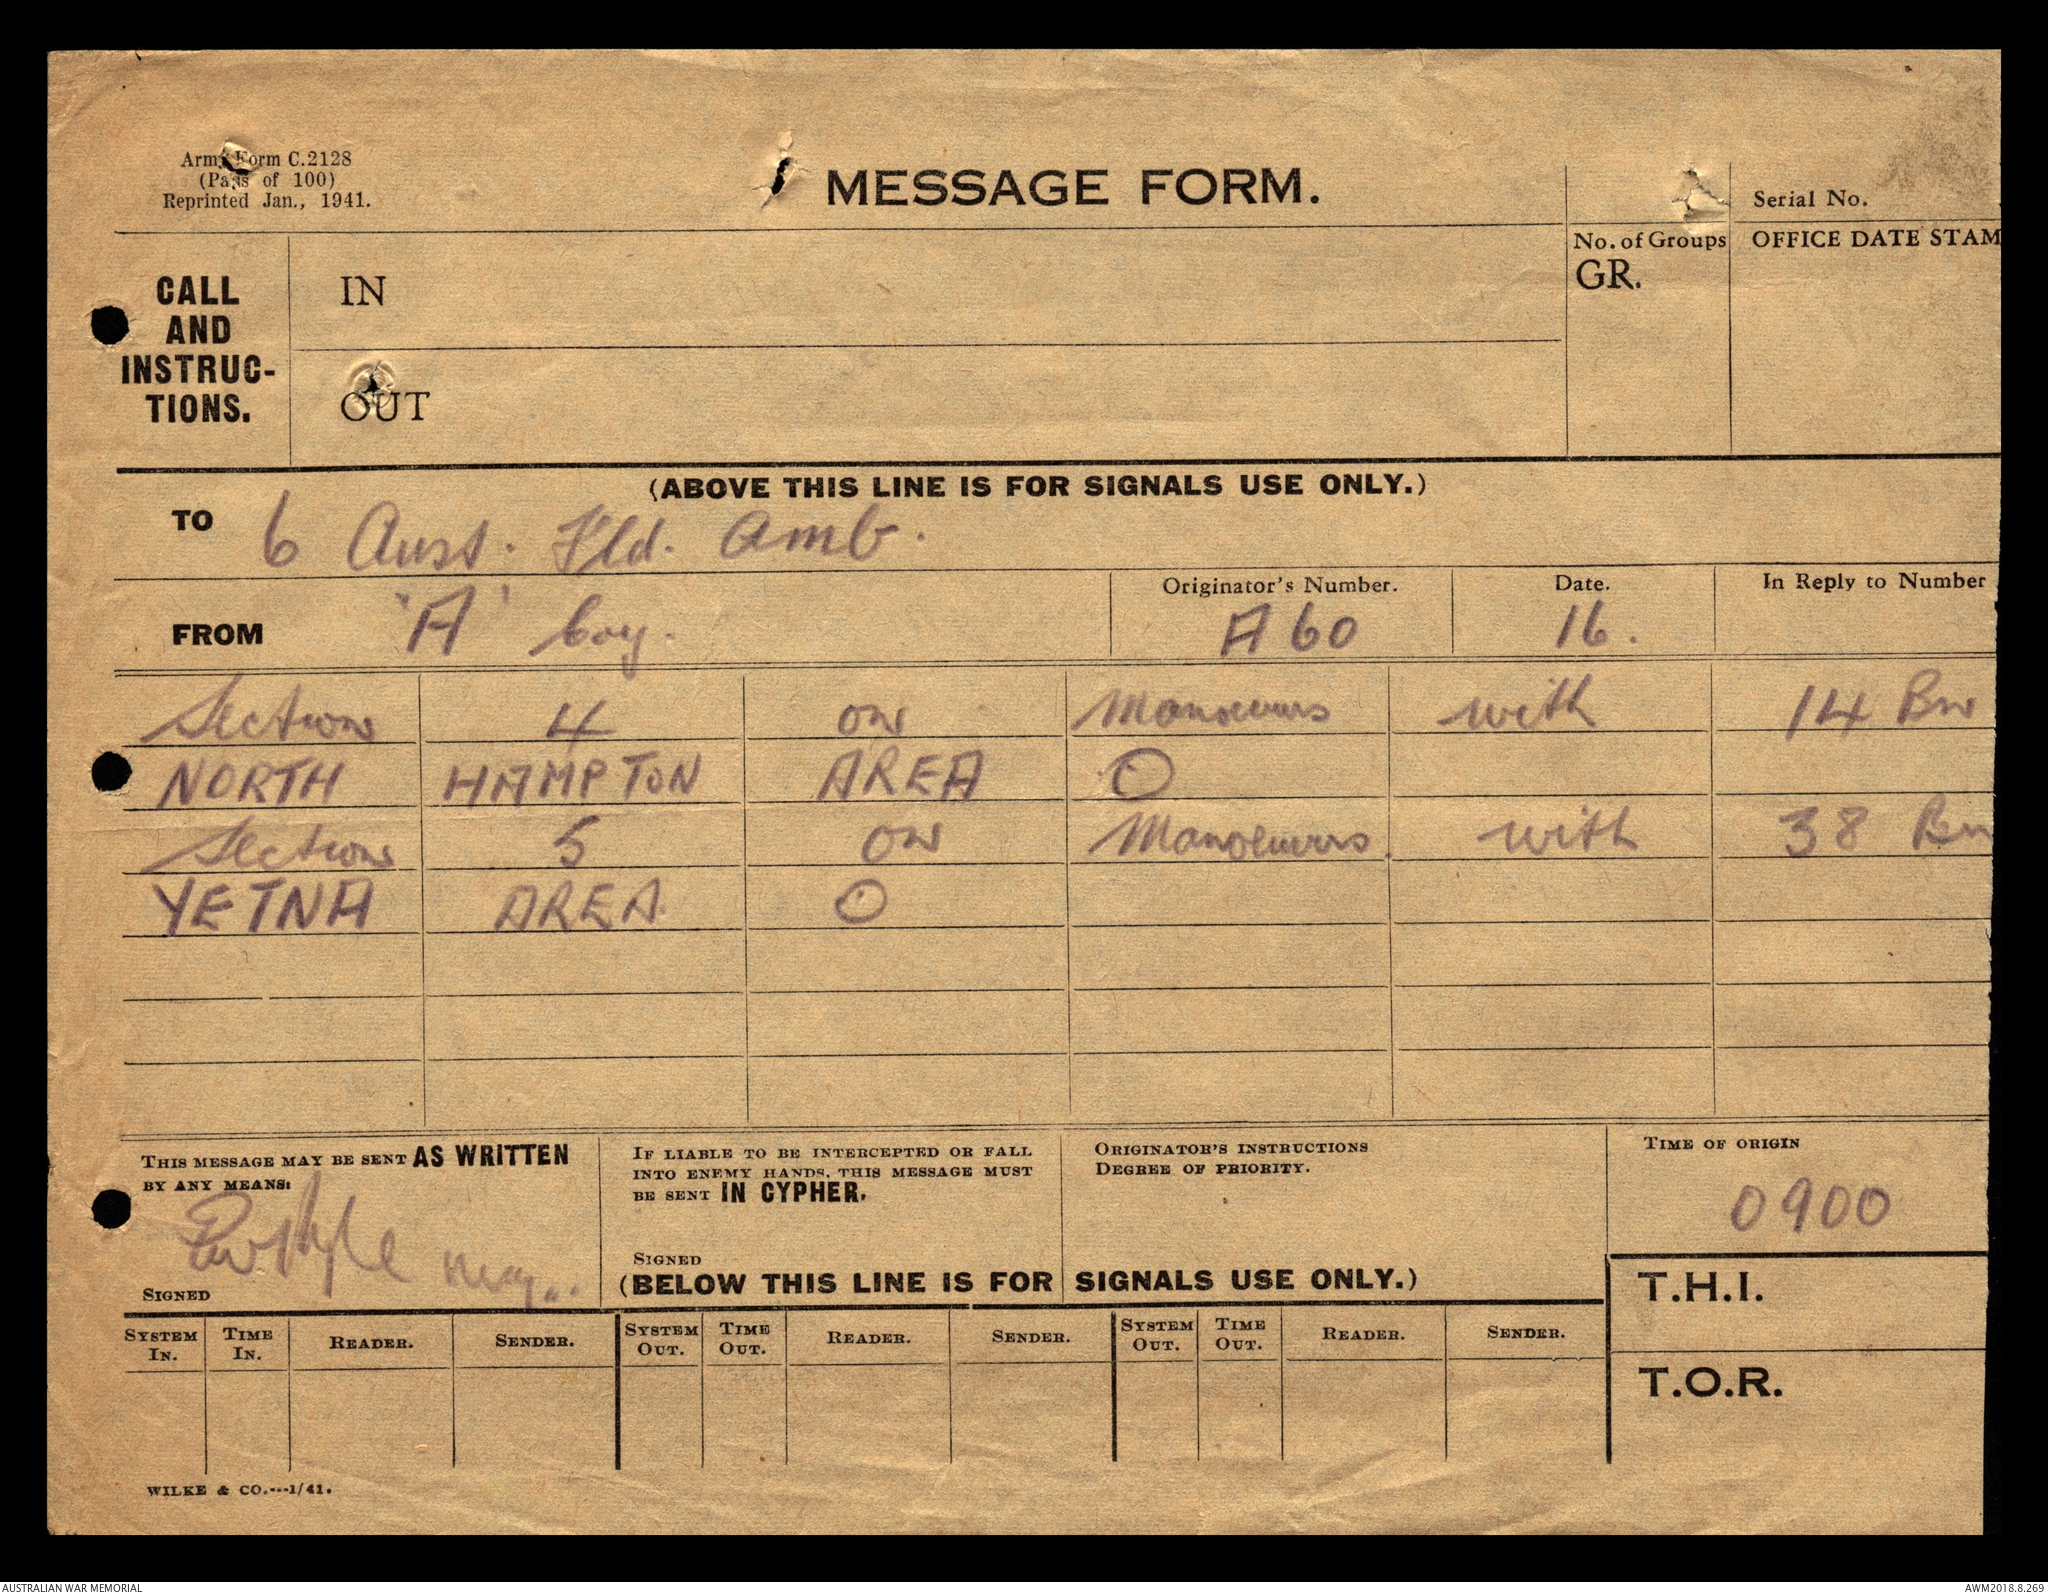 Army Form C.2128
(Pads of 100)
Reprinted Jan., 1941.
MESSAGE FORM.
Serial No.
CALL
AND
INSTRUC-
TIONS.
IN
OUT
No. of Groups
GR.
OFFICE DATE STAM
(ABOVE THIS LINE IS FOR SIGNALS USE ONLY.)
TO 6 Aust. Fld. Amb.
FROM 'A' Coy.
Originator's Number.
A 60
Date.
16.
In Reply to Number
Section 4 on Manoeuvres with 14 Bn
NORTH HAMPTON AREA O
Section 5 on Manoeuvres with 38 Bn
YETNA AREA O
THIS MESSAGE MAY BE SENT AS WRITTEN
BY ANY MEANS:
SIGNED
IF LIABLE TO BE INTERCEPTED OR FALL
INTO ENEMY HANDS, THIS MESSAGE MUST
BE SENT IN CYPHER.
SIGNED
ORIGINATOR'S INSTRUCTIONS
DEGREE OF PRIORITY.
TIME OF ORIGIN
0900
(BELOW THIS LINE IS FOR SIGNALS USE ONLY.)
T.H.I.
T.O.R.
SYSTEM IN. TIME IN. READER. SENDER. SYSTEM OUT. TIME OUT. READER. SENDER. SYSTEM OUT. TIME OUT. READER. SENDER.
WILKE & CO.---1/41.
AUSTRALIAN WAR MEMORIAL
AWM2018.8.269